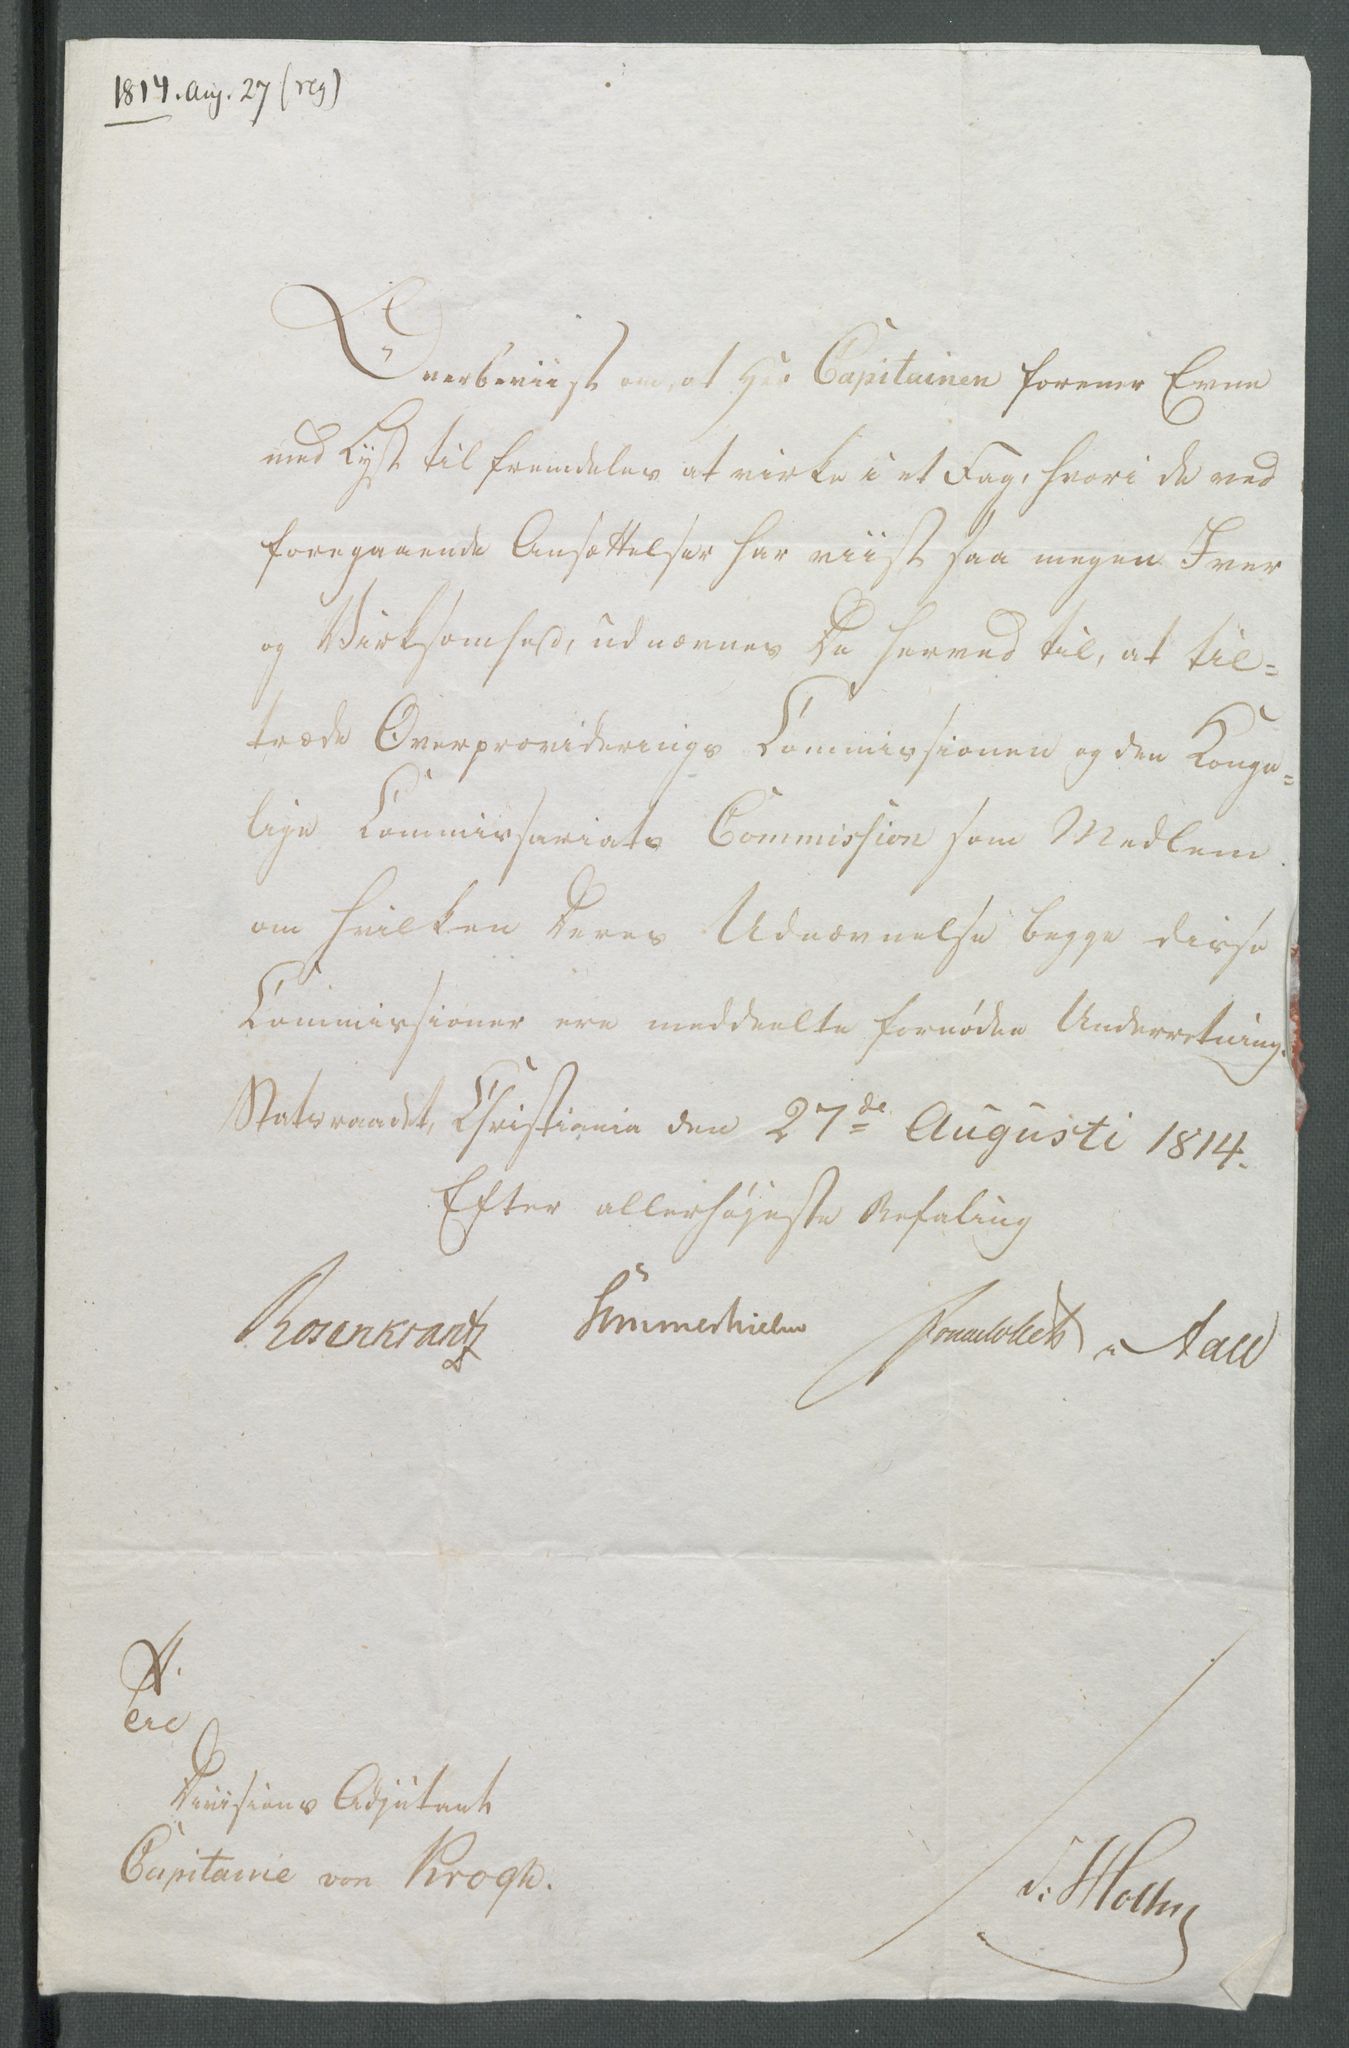 1814. Aug. 27 (reg)
Overbeviist om, at Herr Capitainen forener Evne
med Lyst til fremdeles at virke i et Fag, hvori de ved
foregaaende Ansættelser har viist saa megen Iver
og Virksomhed, udnævnes De herved til, at til=
træde Overproviderings Commissionen og den Konge=
lige Commissariats Commission som Medlem
om hvilken Deres Udnævnelse begge disse
Commissioner ere meddeelte fornøden Underretning.
Statsraadet, Christiania den 27de Augusti 1814.
Efter allerhøjeste Befaling
Rosenkrantz Sommerhielm Aall
Til
Divisions Adjutant
Capitaine von Krogh.